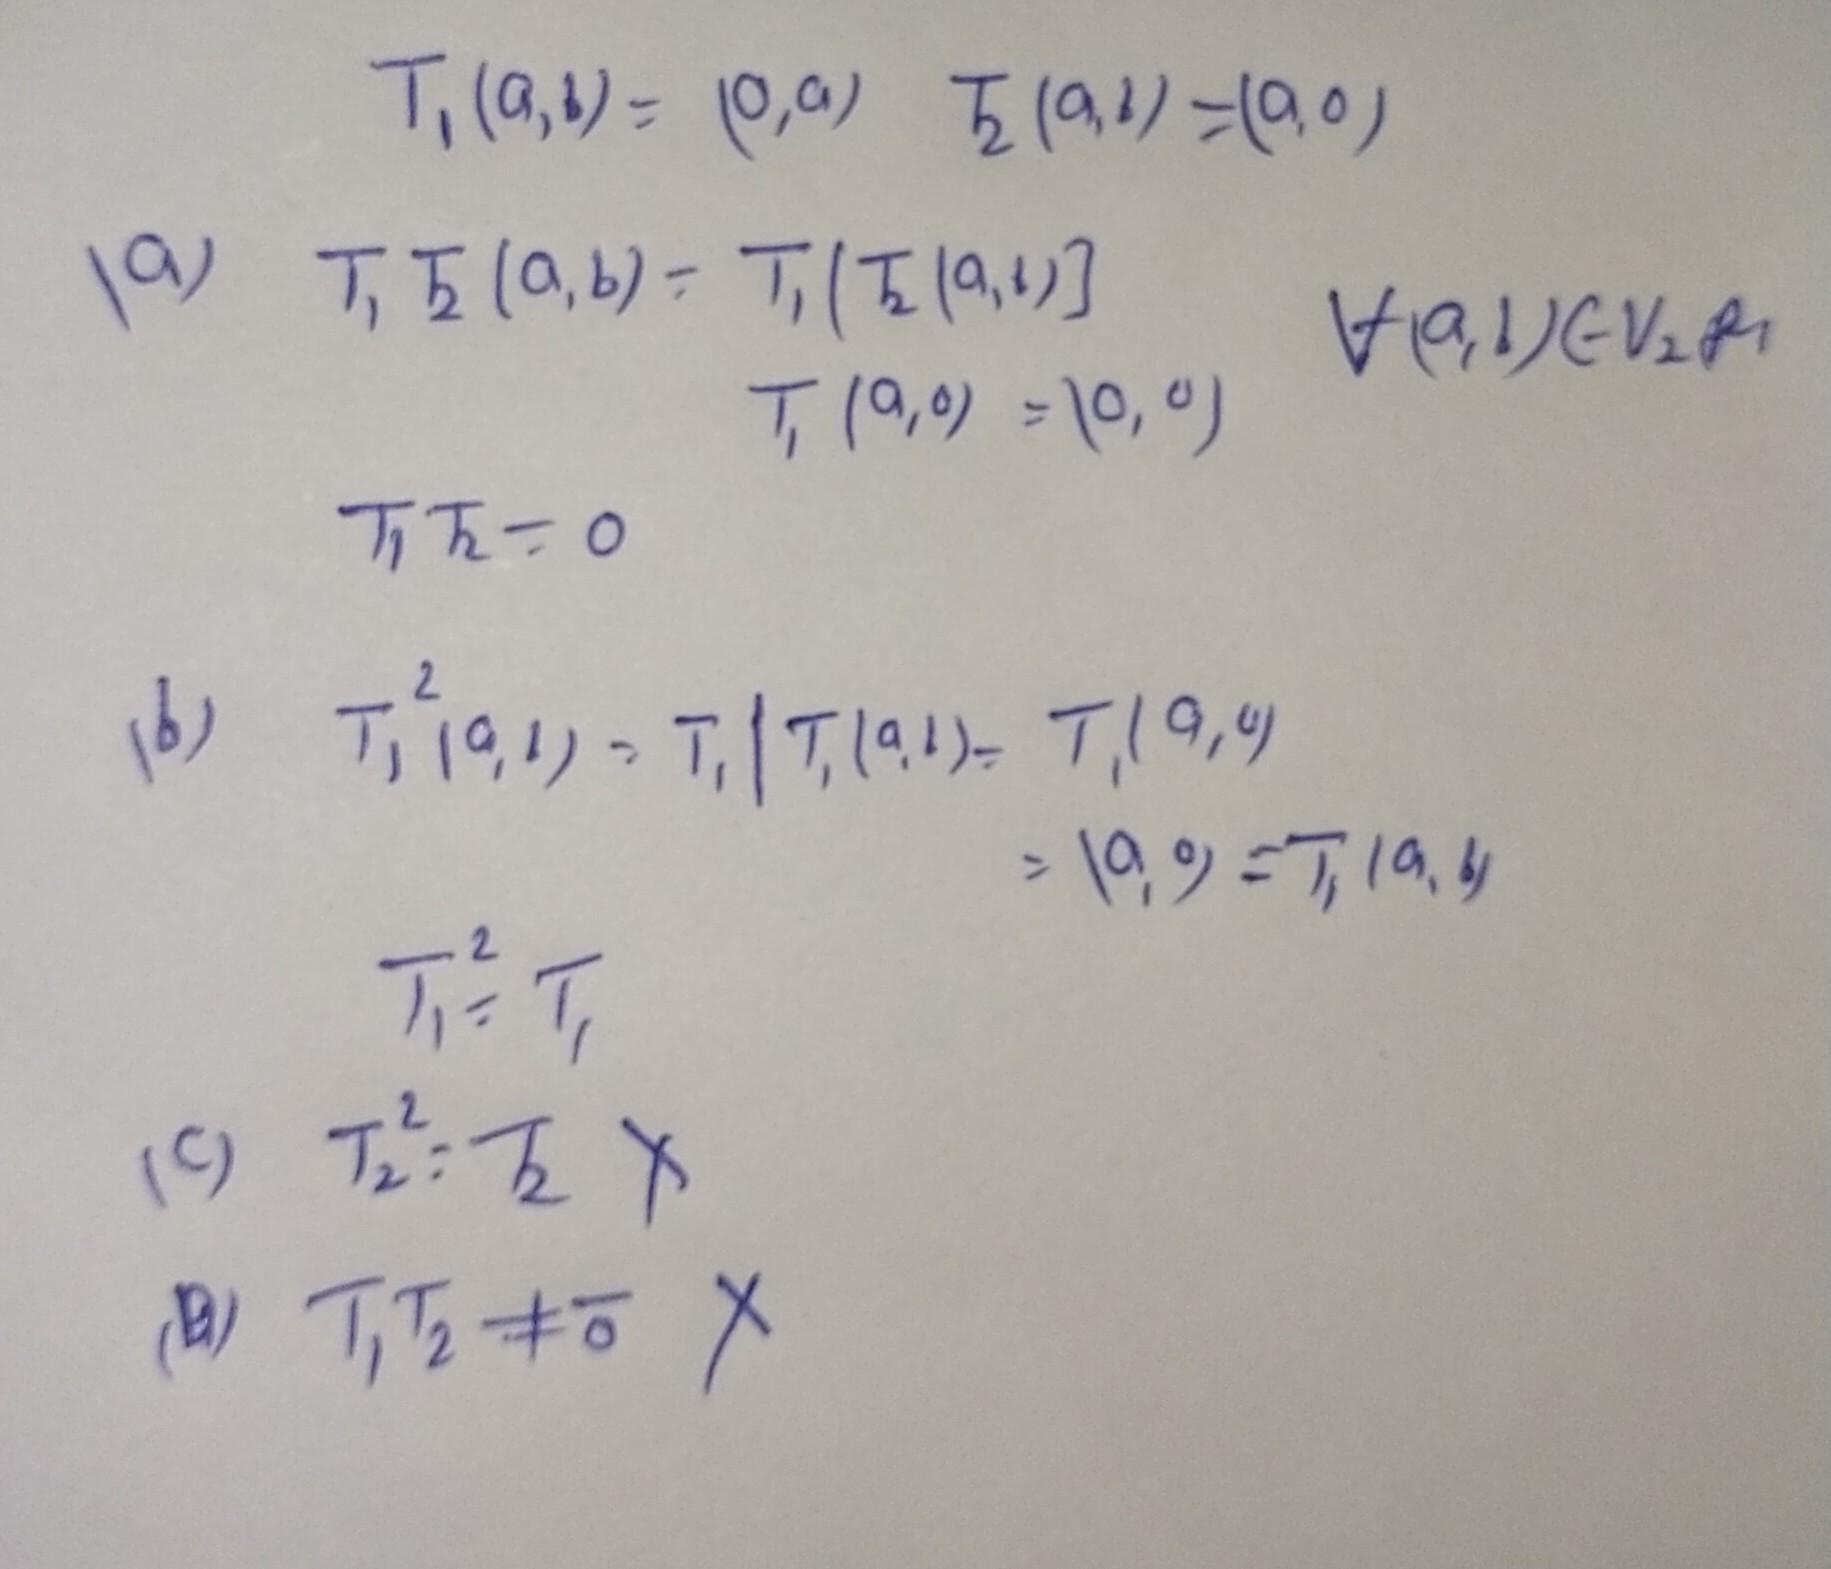 T₁(a,b) = (0,a) T₂(a,b) = (a,0)
(a) T₁T₂(a,b) = T₁(T₂(a,b)] ∀(a,b)∈V₂
T₁(a,0) = (0,0)
T₁T₂ = 0
(b) T₁²(a,b) = T₁(T₁(a,b) = T₁(a,0)
= (a,0) = T₁(a,b)
T₁² = T₁
(C) T₂² = T₂ X
(D) T₁T₂ ≠ ō X